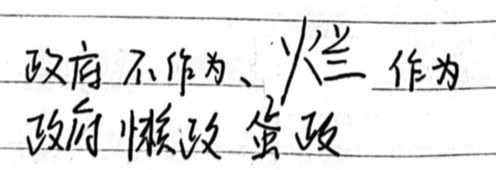 政府不作为、烂作为
政府懒政蛮政